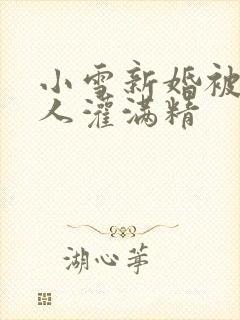 小雪新婚被
人灌满精
湖心荸